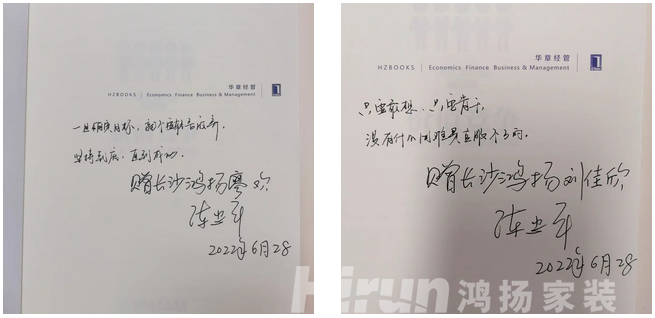 华章经管
HZBOOKS | Economics Finance Business & Management
一旦确定目标，就不要轻言放弃，
坚持到底，直到成功。
赠长沙鸿扬廖
2022年6月28
华章经管
HZBOOKS | Economics Finance Business & Management
只要敢想，只要肯干，
没有什么困难是克服不了的。
赠长沙鸿扬刘佳欣
2022年6月28
Hirun鸿扬家装